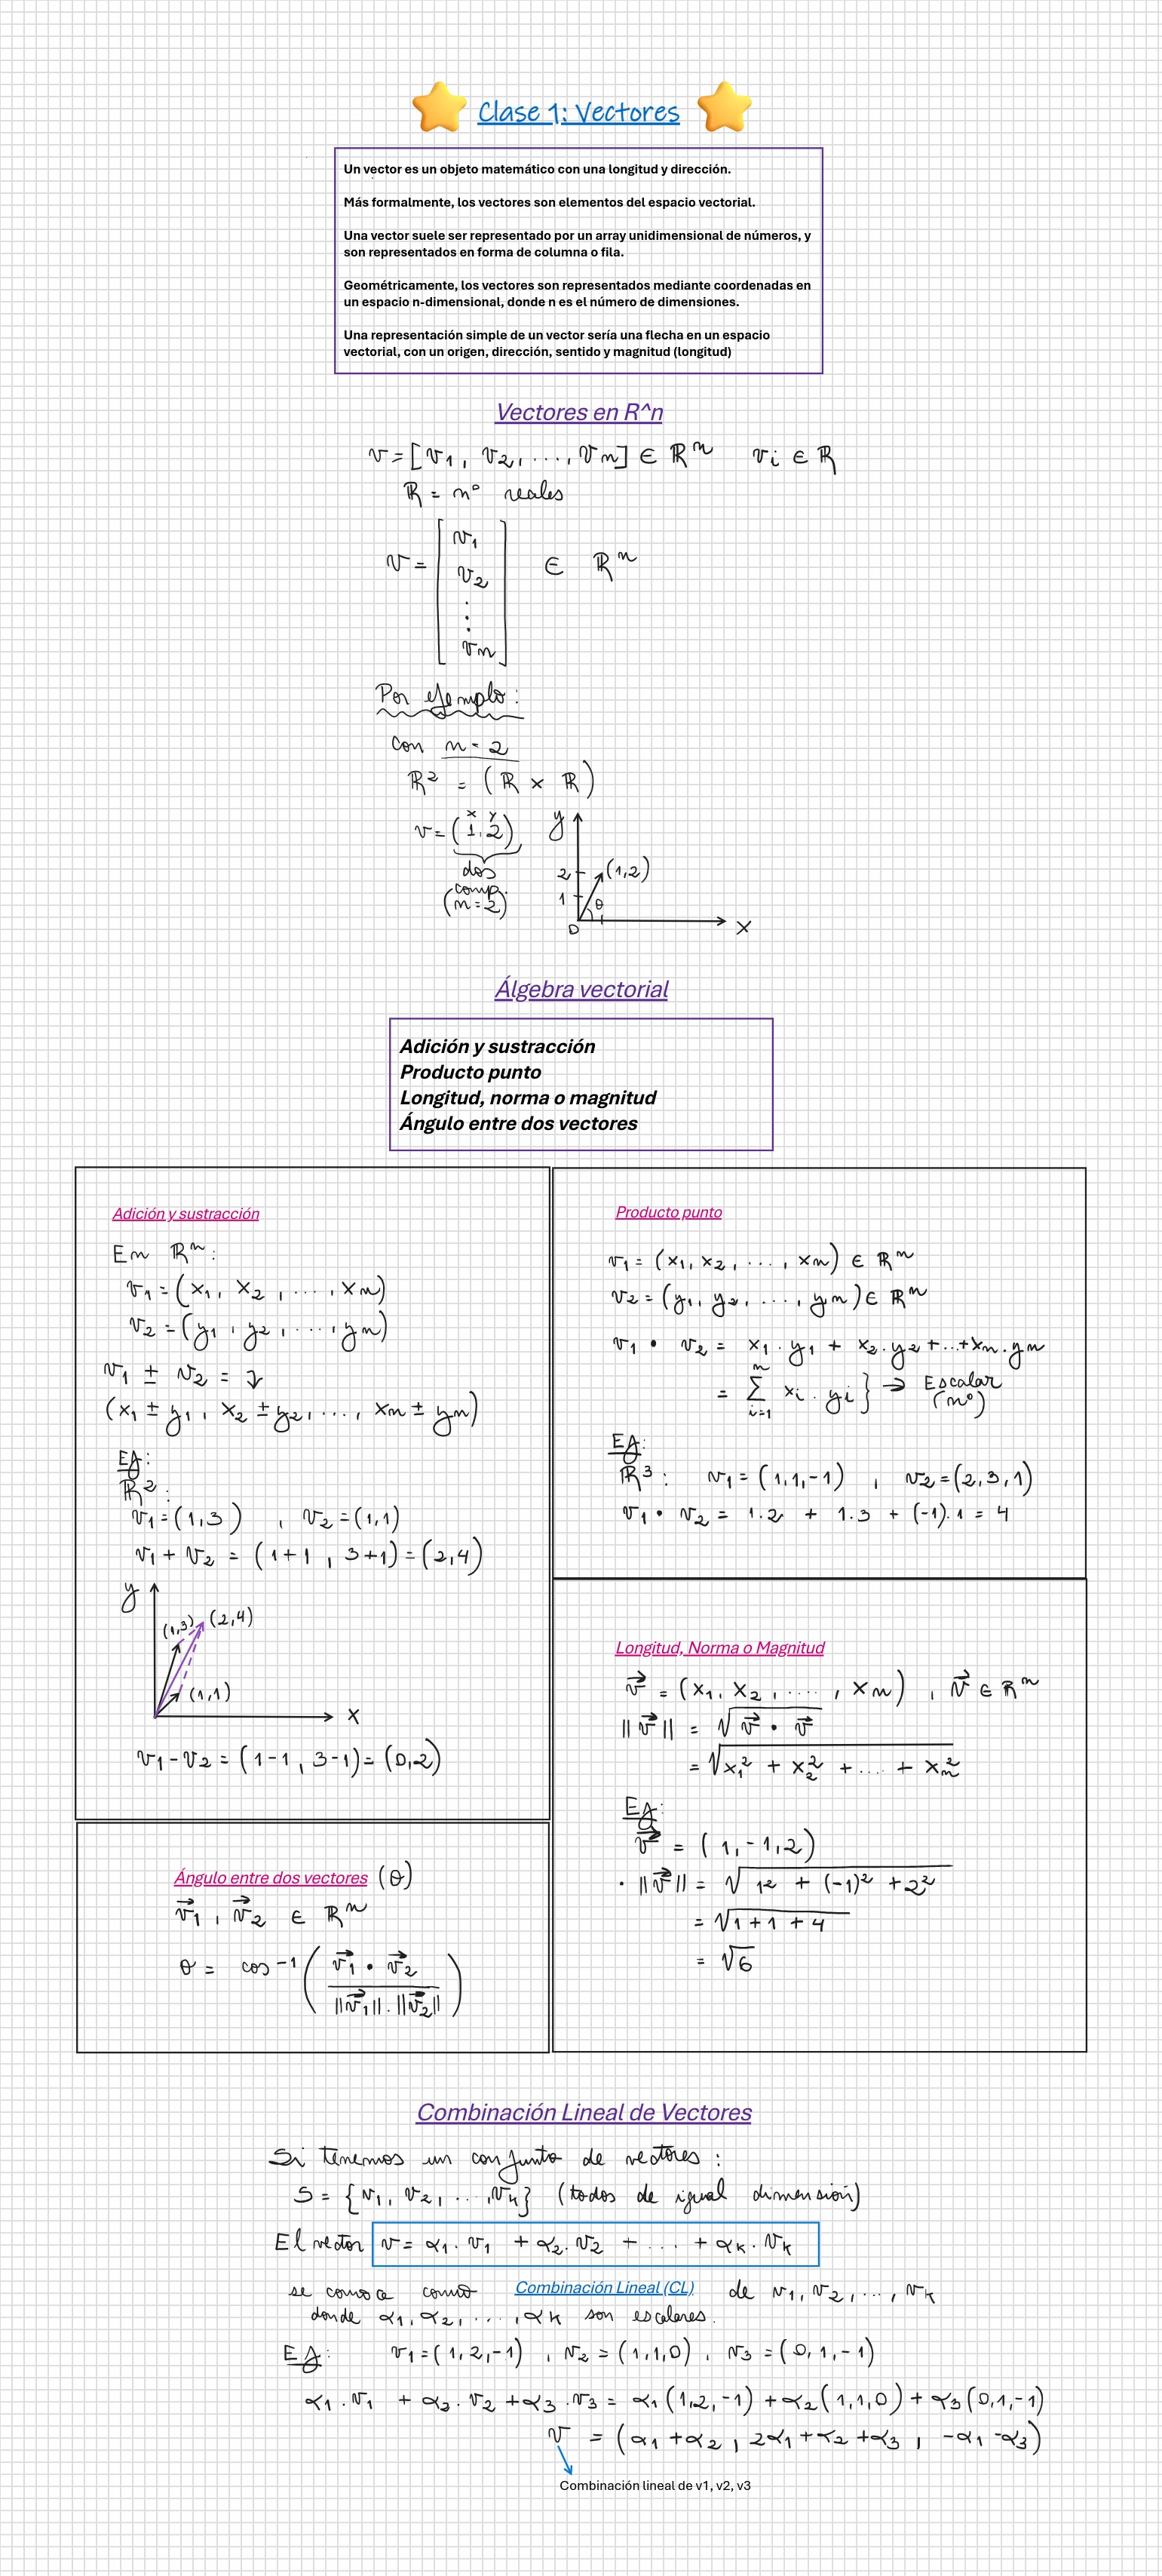 Clase 1: Vectores
Un vector es un objeto matemático con una longitud y dirección.
Más formalmente, los vectores son elementos del espacio vectorial.
Una vector suele ser representado por un array unidimensional de números, y
son representados en forma de columna o fila.
Geométricamente, los vectores son representados mediante coordenadas en
un espacio n-dimensional, donde n es el número de dimensiones.
Una representación simple de un vector sería una flecha en un espacio
vectorial, con un origen, dirección, sentido y magnitud (longitud)
Vectores en R^n
v = [v₁, v₂, ..., vn] ∈ ℝⁿ vi ∈ ℝ
ℝ = n° reales
v = [v₁
v₂
⋮
vn] ∈ ℝⁿ
Por ejemplo:
con n = 2
ℝ² = (ℝ × ℝ)
x y
v = (1,2)
dos
comp.
(n=2)
y
2
(1,2)
1
θ
0
x
Álgebra vectorial
Adición y sustracción
Producto punto
Longitud, norma o magnitud
Ángulo entre dos vectores
Adición y sustracción
En ℝⁿ:
v₁ = (x₁, x₂, ..., xn)
v₂ = (y₁, y₂, ..., yn)
v₁ ± v₂ = ↴
(x₁ ± y₁, x₂ ± y₂, ..., xn ± yn)
EJ:
ℝ²:
v₁ = (1,3) , v₂ = (1,1)
v₁ + v₂ = (1+1 , 3+1) = (2,4)
y
(1,3) (2,4)
(1,1)
x
v₁ - v₂ = (1-1 , 3-1) = (0,2)
Producto punto
v₁ = (x₁, x₂, ..., xn) ∈ ℝⁿ
v₂ = (y₁, y₂, ..., yn) ∈ ℝⁿ
v₁ • v₂ = x₁.y₁ + x₂.y₂ + ... + xn.yn
= ∑ᵢ₌₁ⁿ xi . yi } → Escalar
(n°)
EJ:
ℝ³: v₁ = (1,1,-1) , v₂ = (2,3,1)
v₁ • v₂ = 1.2 + 1.3 + (-1).1 = 4
Longitud, Norma o Magnitud
v⃗ = (x₁, x₂, ...., xn) , v⃗ ∈ ℝⁿ
||v⃗|| = √(v⃗ • v⃗)
= √(x₁² + x₂² + .... + xn²)
EJ:
v⃗ = (1,-1,2)
• ||v⃗|| = √(1² + (-1)² + 2²)
= √(1 + 1 + 4)
= √6
Ángulo entre dos vectores (θ)
v⃗₁, v⃗₂ ∈ ℝⁿ
θ = cos⁻¹( (v⃗₁ • v⃗₂) / (||v⃗₁|| . ||v⃗₂||) )
Combinación Lineal de Vectores
Si tenemos un conjunto de vectores:
S = {v₁, v₂, ..., vk} (todos de igual dimensión)
El vector v = α₁.v₁ + α₂.v₂ + .... + αk.vk
se conoce como Combinación Lineal (CL) de v₁, v₂, ..., vk
donde α₁, α₂, ..., αk son escalares.
EJ: v₁ = (1,2,-1) , v₂ = (1,1,0) , v₃ = (0,1,-1)
α₁.v₁ + α₂.v₂ + α₃.v₃ = α₁(1,2,-1) + α₂(1,1,0) + α₃(0,1,-1)
v = (α₁+α₂ , 2α₁+α₂+α₃ , -α₁-α₃)
Combinación lineal de v1, v2, v3